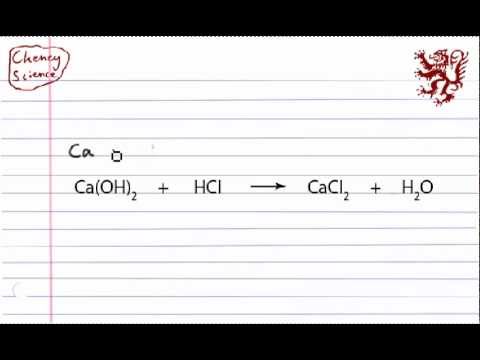 Cheney
Science
Ca O
Ca(OH)₂ + HCl ⟶ CaCl₂ + H₂O